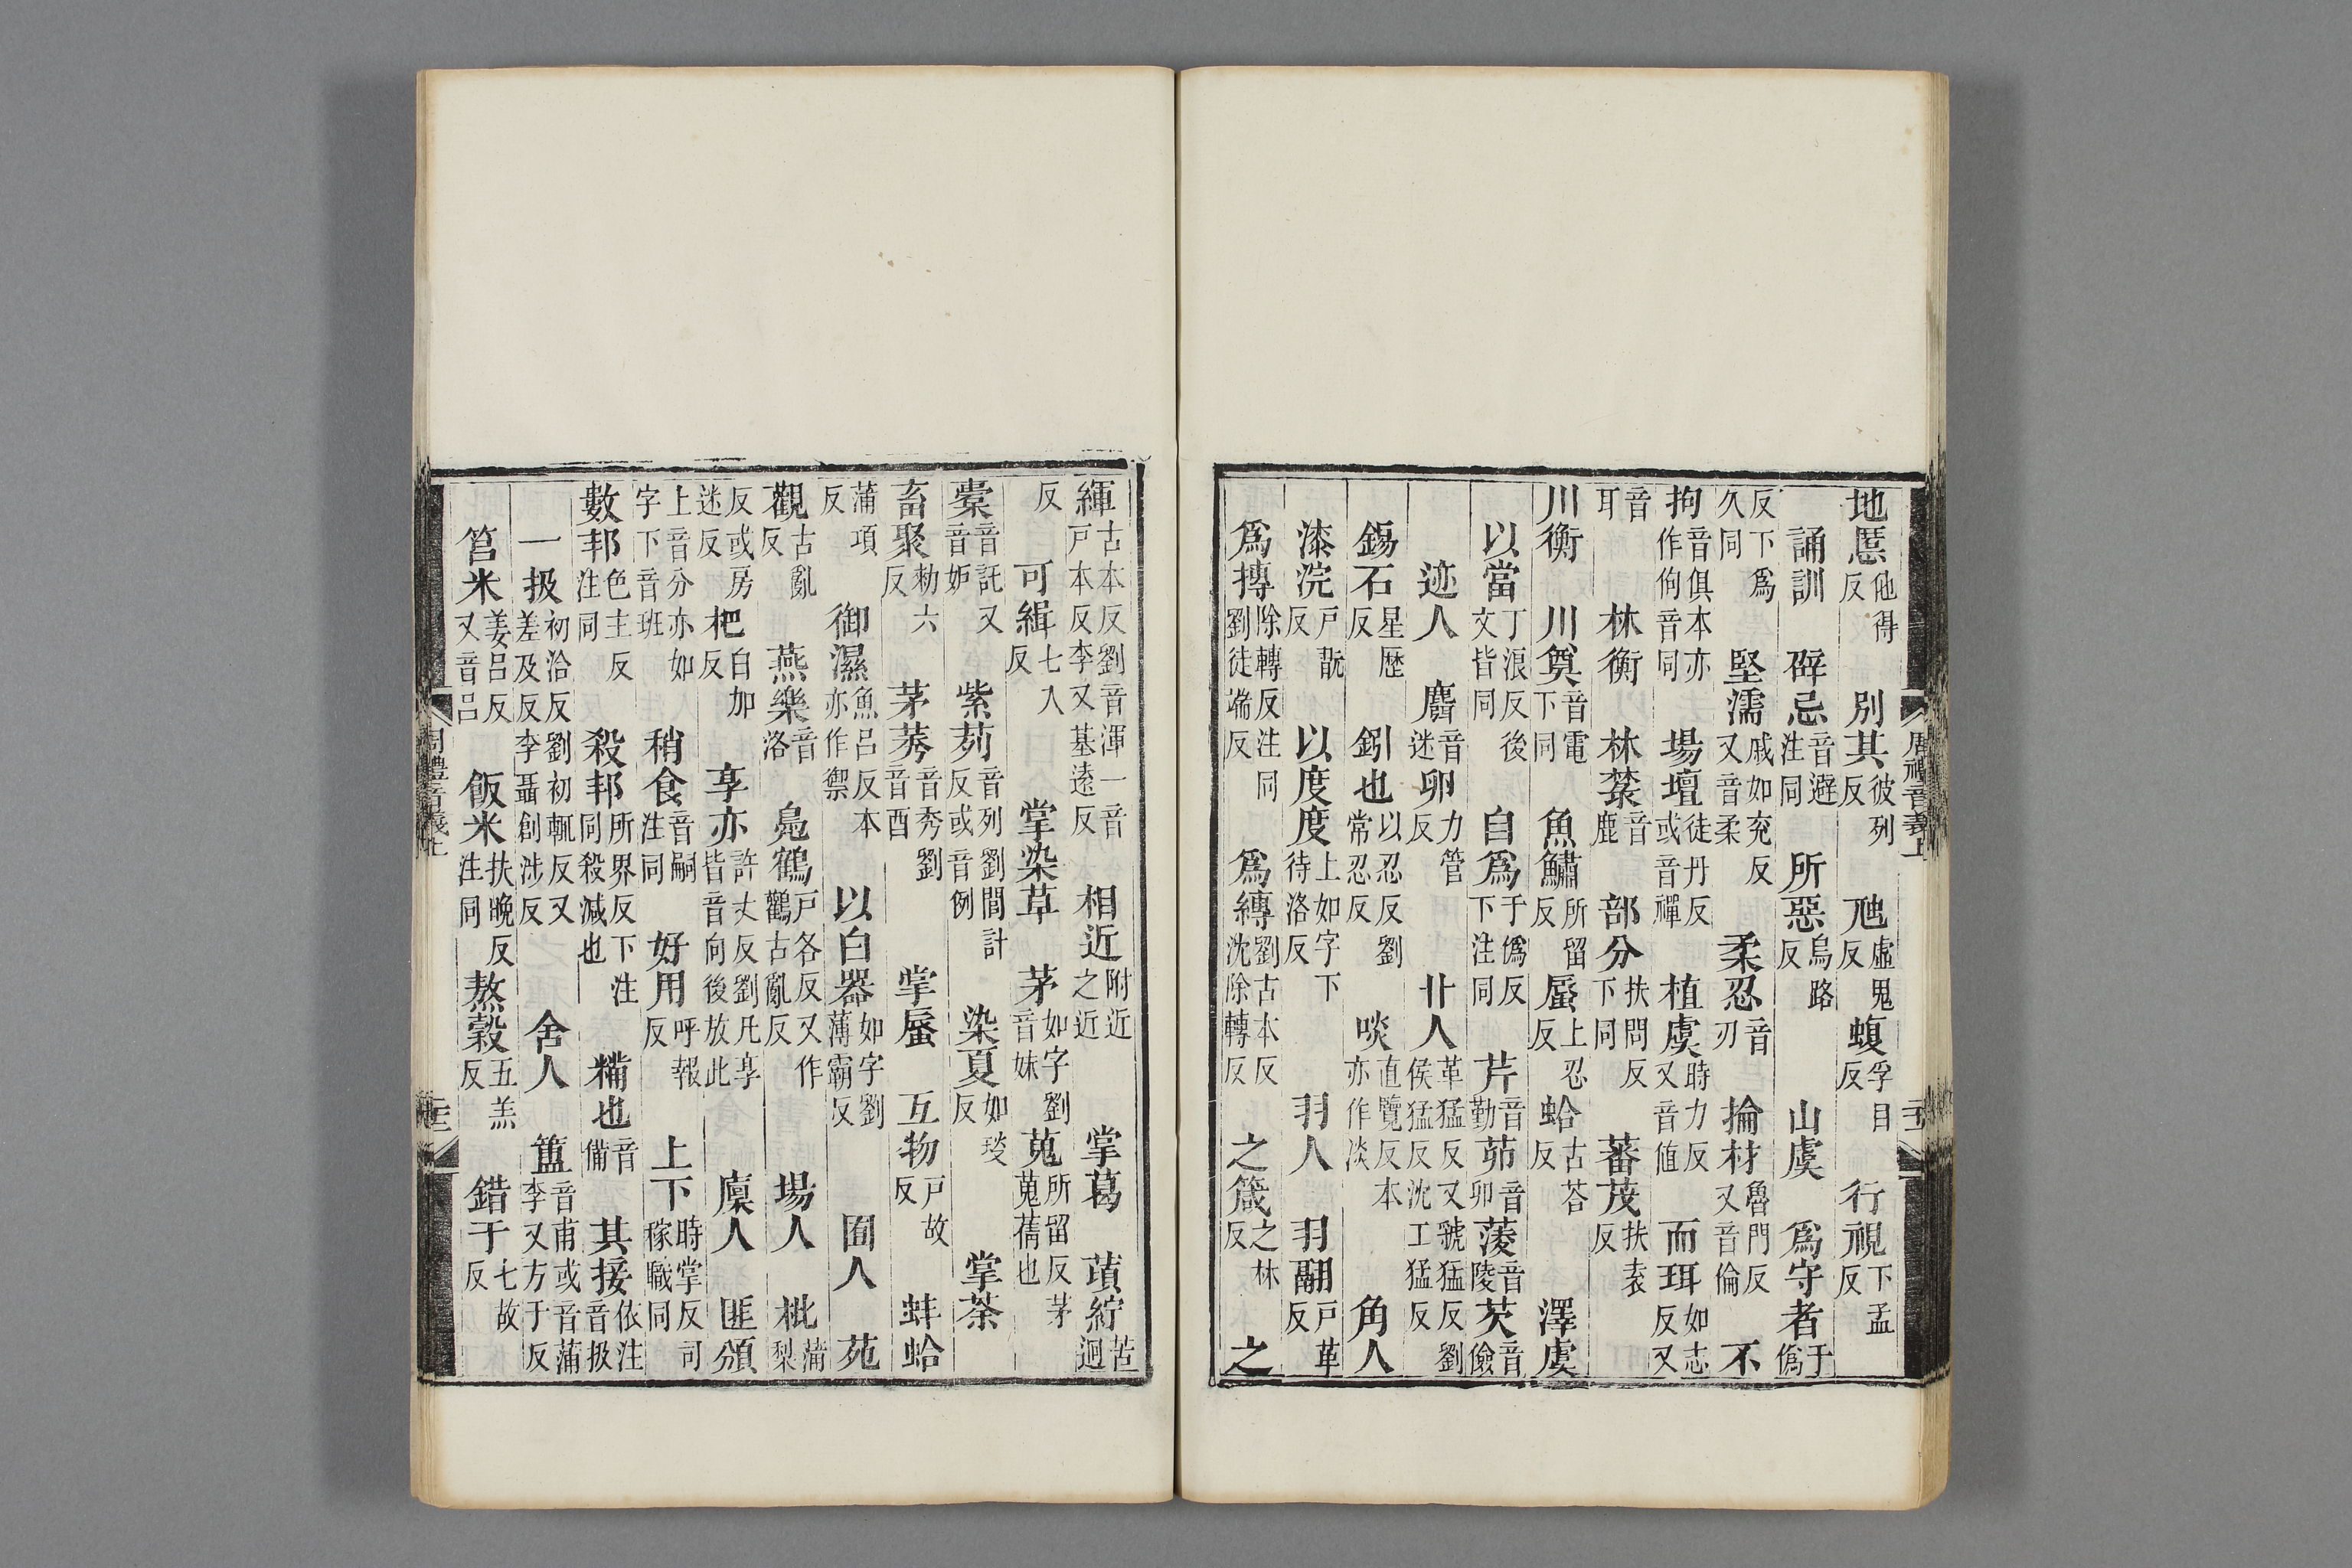 地慝他得反 別其彼列反 虺虛鬼反 蝮孚目反 行視下孟反
誦訓 辟忌音避注同 所惡烏路反 山虞 爲守者于僞
反下爲久同 堅濡戚如兖反又音柔 柔忍音刃 掄材魯門反又音倫 不
拘音俱本亦作佝音同 場壇徒丹反或音禪 植虞時力反又音值 而珥如志反又
音耳 林衡 林麓音鹿 部分扶問反下同 蕃茂扶袁反
川衡 川奠音電下同 魚鱐所留反 蜃上忍反 蛤古荅反 澤虞
以當丁浪反後文皆同 自爲于僞反下注同 芹音勤 茆音卯 蔆音陵 芡音儉
迹人 麛音迷 卵力管反 廾人革猛反又虢猛反劉侯猛反沈工猛反
錫石星歷反 鈏也以忍反劉常忍反 啖直覽反本亦作淡 角人
漆浣戶翫反 以度度上如字下待洛反 羽人 羽翮戶革反
爲摶除轉反注同劉徒端反 爲縳劉古本反沈除轉反 之箴之林反 之
周禮音義上
緷古本反劉音渾一音戶本反李又基遠反 相近附近之近 掌葛 葝紵苦迥
反 可緝七入反 掌染草 茅如字劉音妹 蒐所留反茅蒐蒨也
橐音託又音妒 紫茢音列劉閭計反或音例 染夏如琰反 掌荼
畜聚勑六反 茅莠音秀劉音酉 掌蜃 互物戶故反 蚌蛤
蒲項反 御濕魚呂反本亦作禦 以白器如字劉薄霸反 囿人 苑
觀古亂反 燕樂音洛 鳧鶴戶各反又作鸛古亂反 場人 枇蒲梨
反或房迷反 杷白加反 享亦許丈反劉凡享皆音向後放此 廩人 匪頒
上音分亦如字下音班 稍食音嗣注同 好用呼報反 上下時掌反司稼職同
數邦色主反注同 殺邦所界反下注同殺減也 糒也音備 其接依注音扱
一扱初洽反劉初輒反又差及反李聶創涉反 舍人 簠音甫或音蒲李又方于反
筥米姜呂反又音呂 飯米扶晚反注同 熬穀五羔反 錯于七故反
周禮音義上